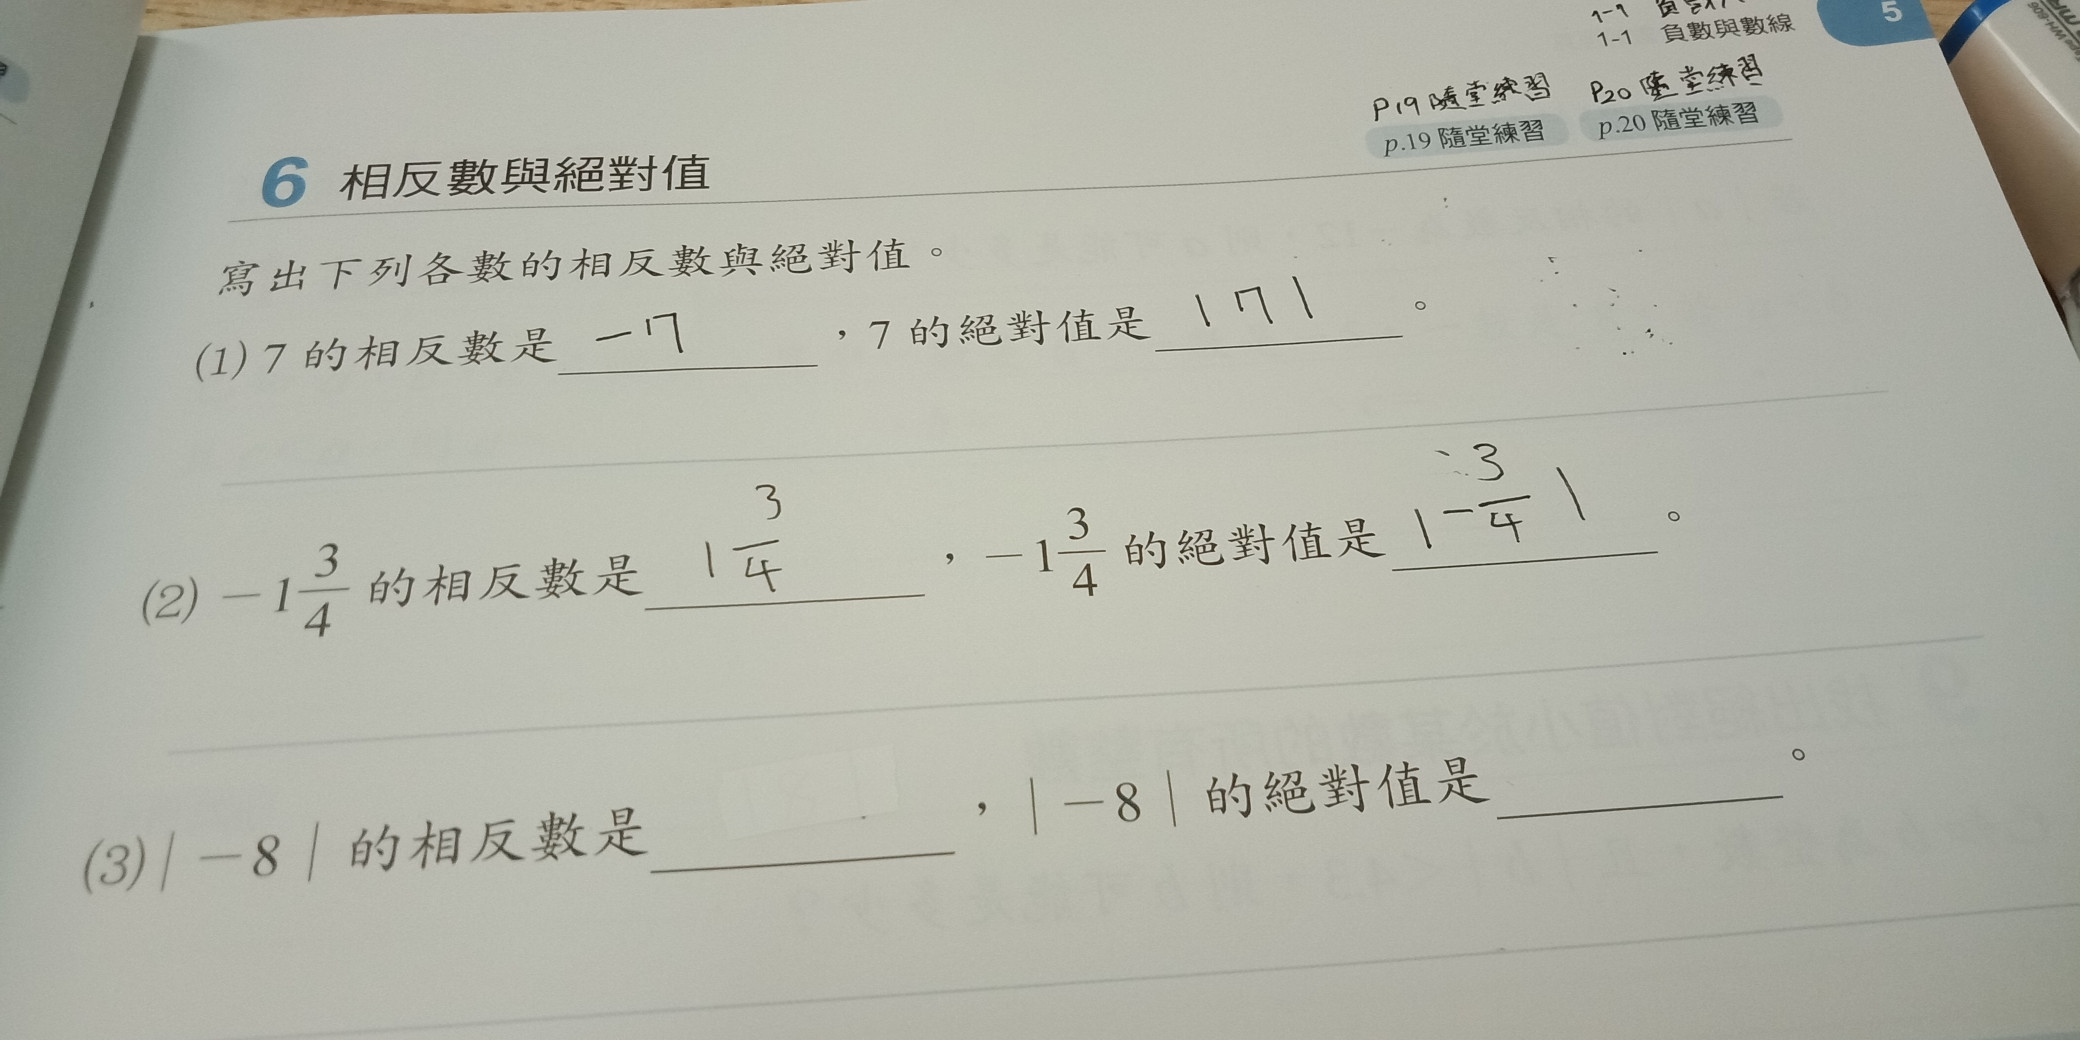 1-1 負數與數線
5
P19隨堂練習 P20隨堂練習
p.19 隨堂練習 p.20 隨堂練習
6 相反數與絕對值
寫出下列各數的相反數與絕對值。
(1) 7 的相反數是 -7 ，7 的絕對值是 |7| 。
(2) -1 3/4 的相反數是 1 3/4 ，-1 3/4 的絕對值是 |-3/4| 。
(3) |-8| 的相反數是 ，|-8| 的絕對值是 。